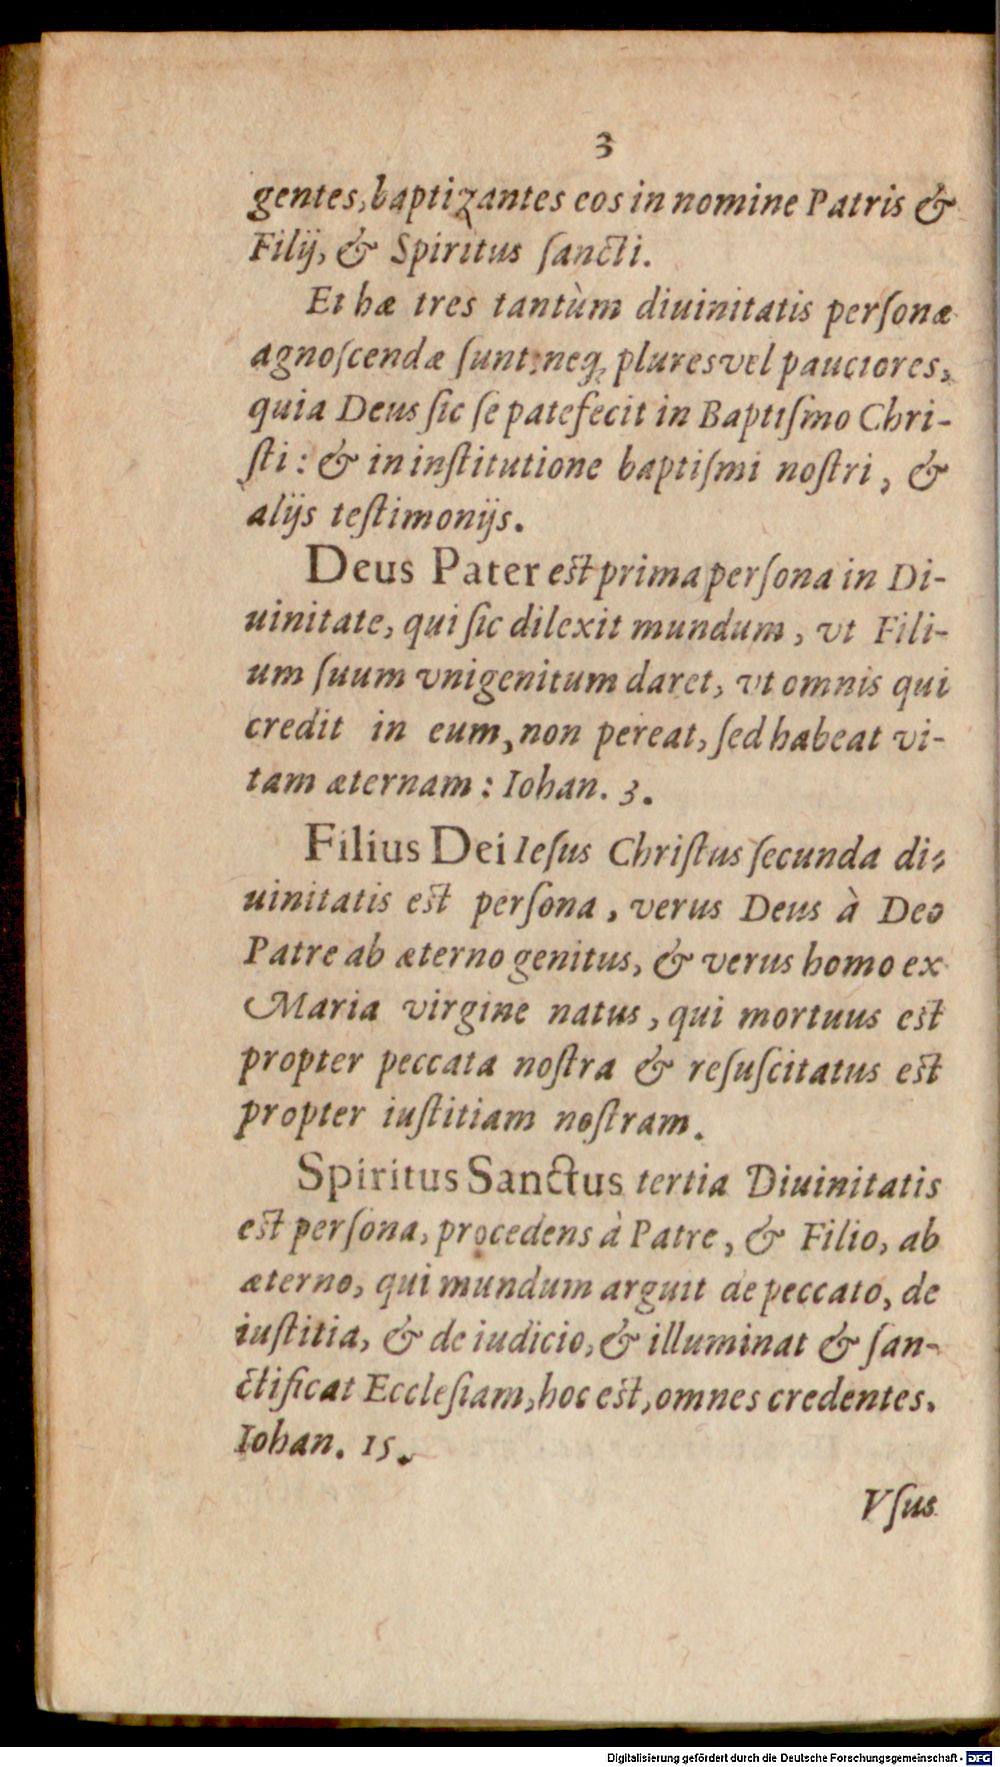 3
gentes, baptizantes eos in nomine Patris &
Filij, & Spiritus ſancti.
Et hæ tres tantùm diuinitatis perſonæ
agnoſcendæ ſunt: neq; plures vel pauciores,
quia Deus ſic ſe patefecit in Baptiſmo Chri-
ſti: & in inſtitutione baptiſmi noſtri, &
alijs teſtimonijs.
Deus Pater eſt prima perſona in Di-
uinitate, qui ſic dilexit mundum, vt Fili-
um ſuum vnigenitum daret, vt omnis qui
credit in eum, non pereat, ſed habeat vi-
tam æternam: Iohan. 3.
Filius Dei Ieſus Chriſtus ſecunda di-
uinitatis eſt perſona, verus Deus à Deo
Patre ab æterno genitus, & verus homo ex
Maria virgine natus, qui mortuus eſt
propter peccata noſtra & reſuſcitatus eſt
propter iuſtitiam noſtram.
Spiritus Sanctus tertia Diuinitatis
eſt perſona, procedens à Patre, & Filio, ab
æterno, qui mundum arguit de peccato, de
iuſtitia, & de iudicio, & illuminat & ſan-
ctificat Eccleſiam, hoc eſt, omnes credentes.
Iohan. 15.
Vſus
Digitalisierung gefördert durch die Deutsche Forschungsgemeinschaft - DFG